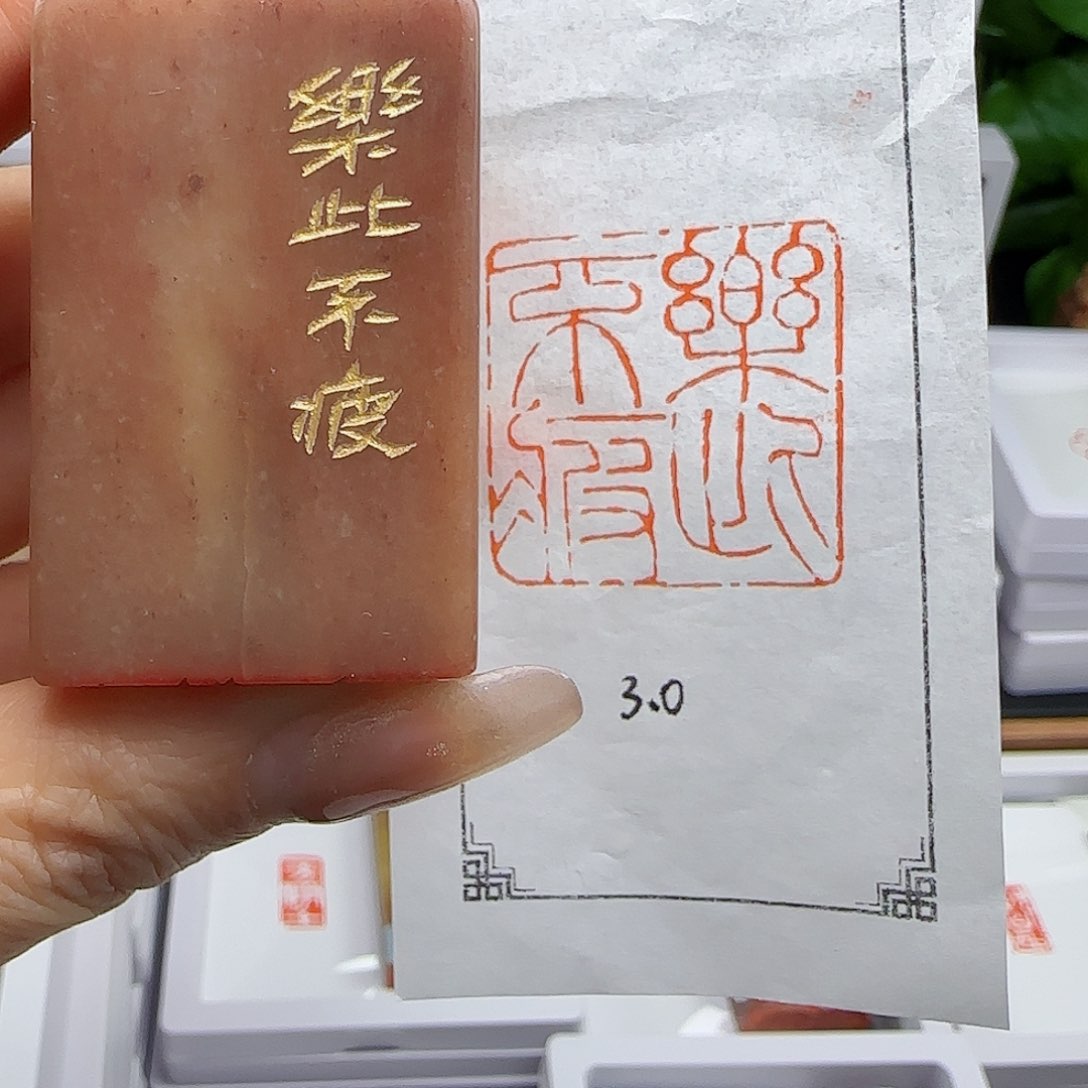 樂此不疲
樂此
不疲
3.0